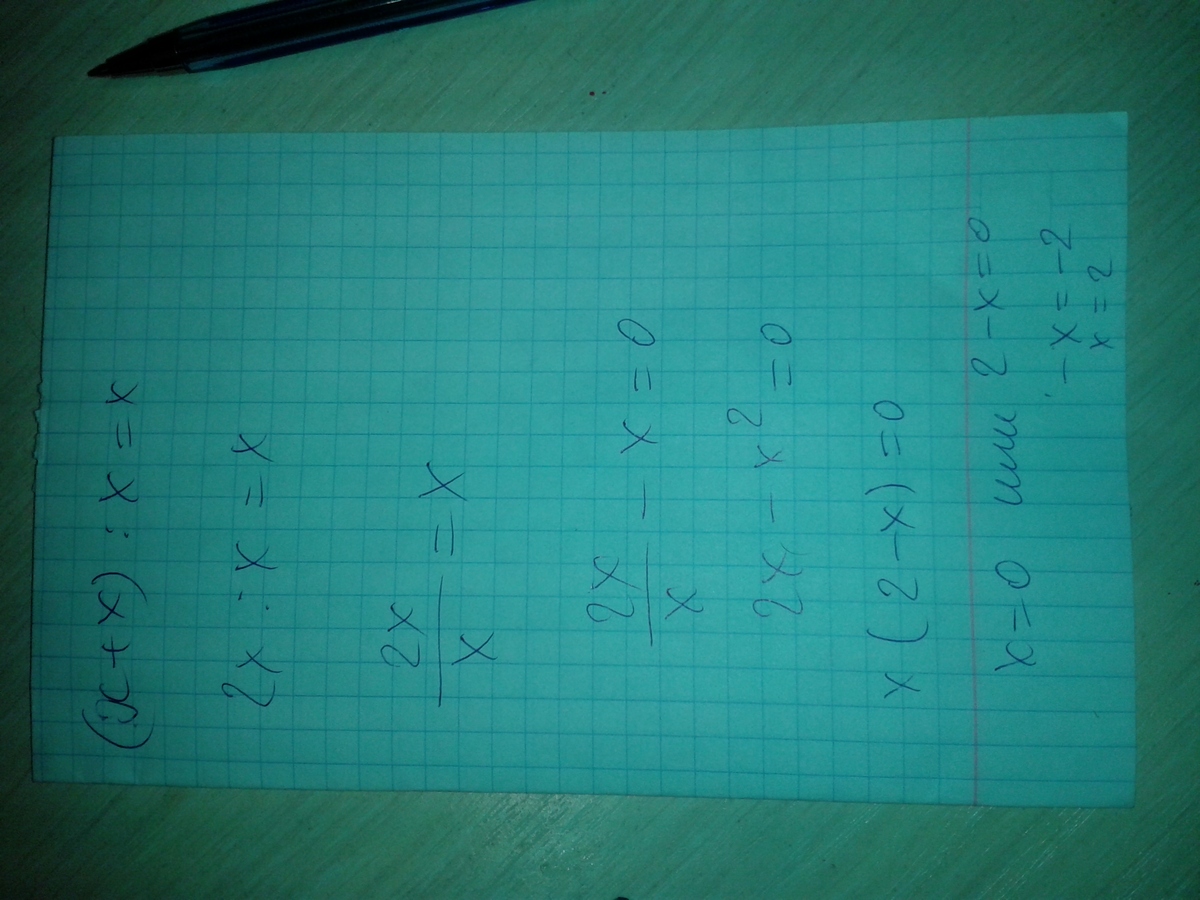 (x+x) : x = x
2x : x = x
2x/x = x
2x/x - x = 0
2x - x² = 0
x(2-x)=0
x=0 или 2-x=0
-x=-2
x=2